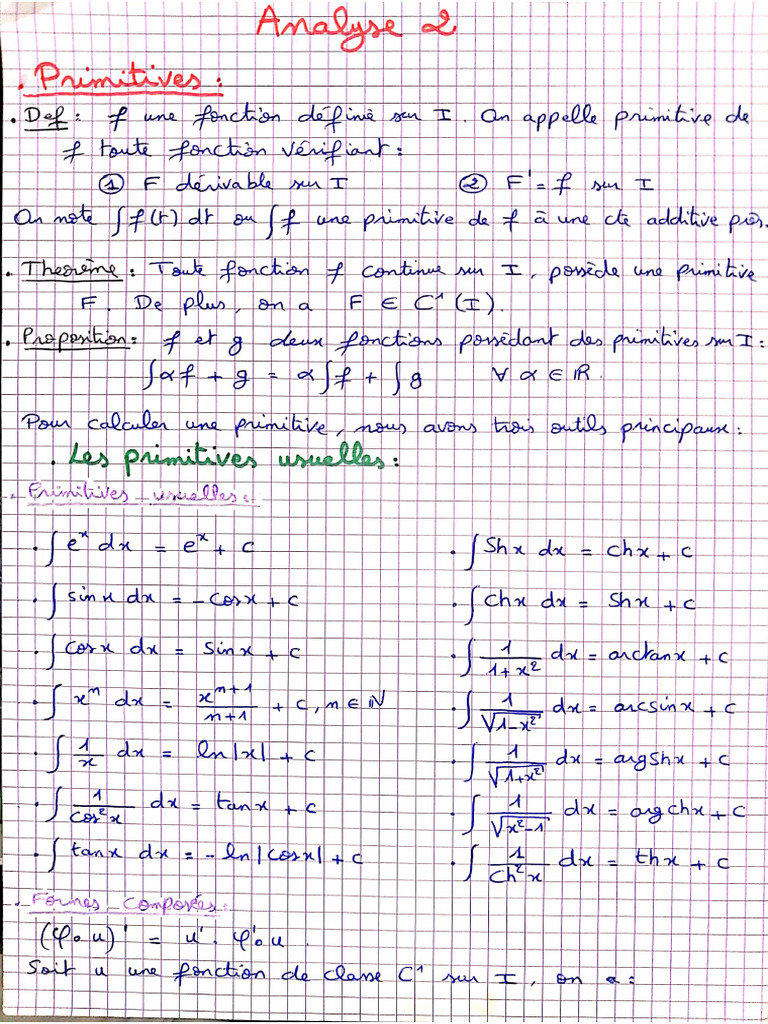 Analyse 2
. Primitives :
. Def : f une fonction définie sur I. On appelle primitive de
f toute fonction vérifiant :
① F dérivable sur I ② F' = f sur I
On note ∫f(t) dt ou ∫f une primitive de f à une cte additive près.
. Theorème : Toute fonction f continue sur I, possède une primitive
F. De plus, on a F ∈ C¹(I).
. Proposition : f et g deux fonctions possédant des primitives sur I :
∫αf + g = α∫f + ∫g ∀ α ∈ ℝ.
Pour calculer une primitive, nous avons trois outils principaux :
. Les primitives usuelles :
. Primitives usuelles :
. ∫ eˣ dx = eˣ + c . ∫ Shx dx = chx + c
. ∫ sinx dx = -cosx + c . ∫ chx dx = Shx + c
. ∫ cosx dx = sinx + c . ∫ 1/(1+x²) dx = arctanx + c
. ∫ xⁿ dx = xⁿ⁺¹/(n+1) + c, n ∈ ℕ . ∫ 1/√(1-x²) dx = arcsinx + c
. ∫ 1/x dx = ln|x| + c . ∫ 1/√(1+x²) dx = argshx + c
. ∫ 1/cos²x dx = tanx + c . ∫ 1/√(x²-1) dx = argchx + c
. ∫ tanx dx = -ln|cosx| + c . ∫ 1/Ch²x dx = thx + c
. Formes composées :
(φ∘u)' = u'. φ'∘u .
Soit u une fonction de classe C¹ sur I, on a :